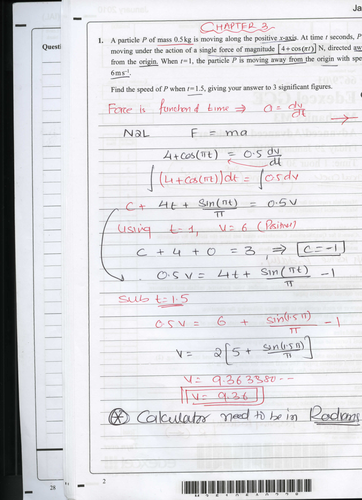 Ja
CHAPTER 3
Questi
1. A particle P of mass 0.5 kg is moving along the positive x-axis. At time t seconds, P
moving under the action of a single force of magnitude [4 + cos(πt)] N, directed aw
from the origin. When t = 1, the particle P is moving away from the origin with spe
6 m s⁻¹.
Find the speed of P when t = 1.5, giving your answer to 3 significant figures.
Force is function of time ⇒ a = dv/dt
N2L F = ma
4+cos(πt) = 0.5 dv/dt
∫(4+cos(πt))dt = ∫0.5dv
C + 4t + sin(πt)/π = 0.5V
Using t=1, V=6 (Positive)
C + 4 + 0 = 3, ⇒ C = -1
0.5V = 4t + sin(πt)/π - 1
Sub t=1.5
0.5V = 6 + sin(1.5π)/π - 1
V = 2[5 + sin(1.5π)/π]
V = 9.363380--
V = 9.36
* Calculator need to be in Radians
28
2